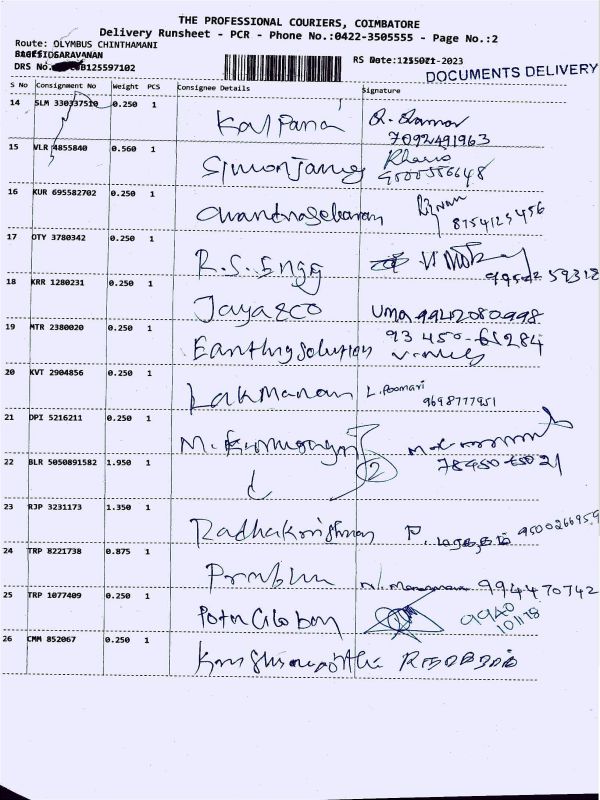 THE PROFESSIONAL COURIERS, COIMBATORE
Delivery Runsheet - PCR - Phone No.:0422-3505555 - Page No.:2
Route: OLYMBUS CHINTHAMANI
SARAVANAN
DRS No. 125597102
RS Date: -2023
DOCUMENTS DELIVERY
S No Consignment No Weight PCS Consignee Details Signature
14 SLM 330337510 0.250 1 Kalpana
7092491963
15 VLR 4855840 0.560 1 Simonjames
16 KUR 695582702 0.250 1 Chandrasekaran
8754125456
17 OTY 3780342 0.250 1 R.S. Engg
59312
18 KRR 1280231 0.250 1 Jaya &co Uma 9942080998
19 MTR 2380020 0.250 1 Earthing Solution 93 450-61284
20 KVT 2904856 0.250 1 Lakmanan L. Poomari
9698777951
21 DPI 5216211 0.250 1 M.
22 BLR 5050891582 1.950 1 2
23 RJP 3231173 1.350 1 Radhakrishnan P. 9500266959
24 TRP 8221738 0.875 1 Prabhu 9944470742
25 TRP 1077409 0.250 1 9940
10178
26 CMM 852067 0.250 1